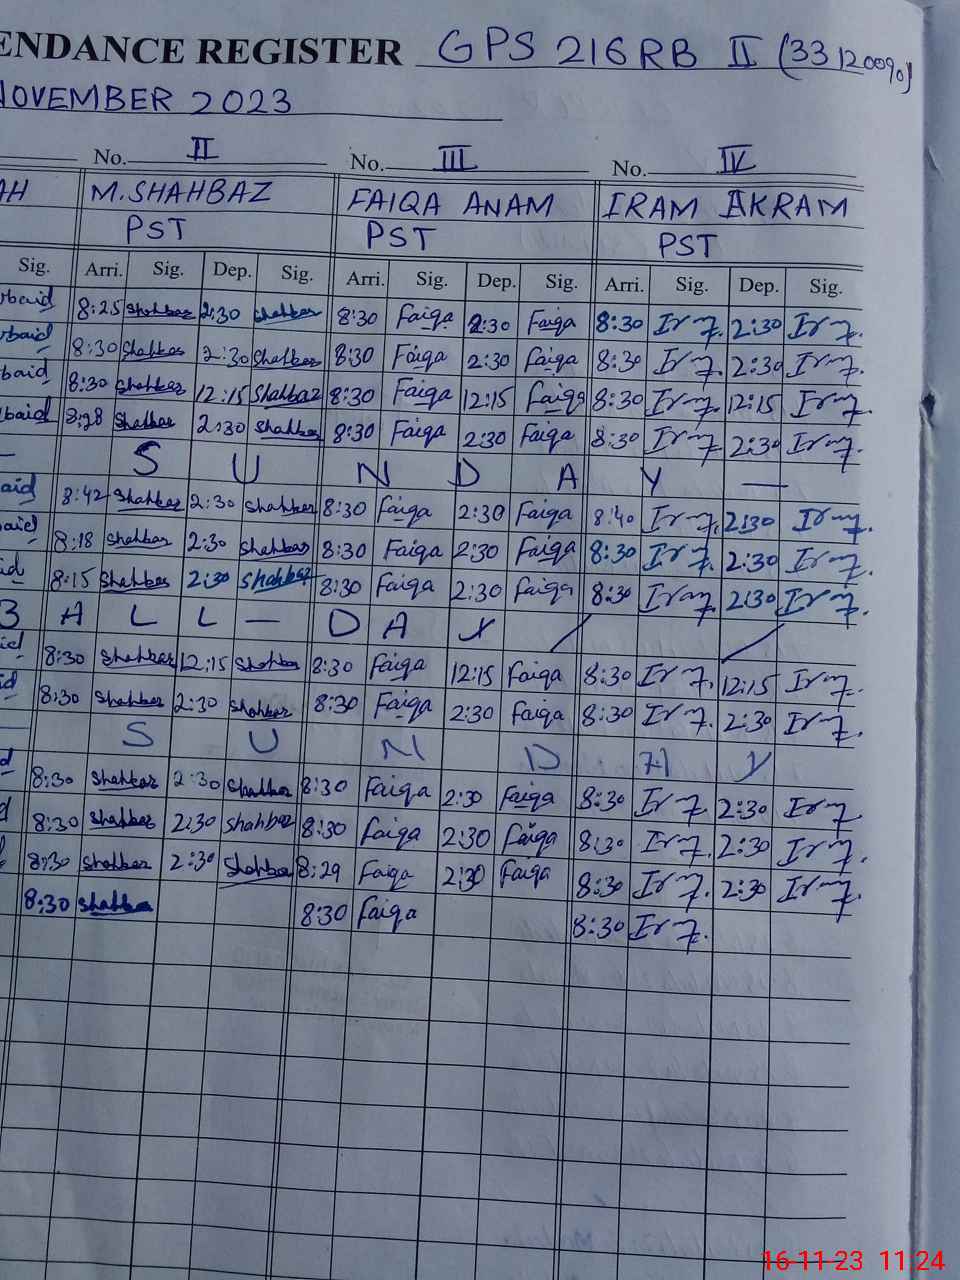 ENDANCE REGISTER GPS 216 RB II (33120090)
NOVEMBER 2023
No. II No. III No. IV
AH M.SHAHBAZ FAIQA ANAM IRAM AKRAM
PST PST PST
Sig. Arri. Sig. Dep. Sig. Arri. Sig. Dep. Sig. Arri. Sig. Dep. Sig.
baid 8:25 Shahbaz 2:30 Shahbaz 8:30 Faiqa 2:30 Faiqa 8:30 2:30
baid 8:30 Shahbaz 2:30 Shahbaz 8:30 Faiqa 2:30 Faiqa 8:30 2:30
baid 8:30 Shahbaz 12:15 Shahbaz 8:30 Faiqa 12:15 Faiqa 8:30 12:15
baid 8:28 Shahbaz 2:30 Shahbaz 8:30 Faiqa 2:30 Faiqa 8:30 2:30
— S U N D A Y —
aid 8:42 Shahbaz 2:30 Shahbaz 8:30 Faiqa 2:30 Faiqa 8:40 2:30
aid 8:18 Shahbaz 2:30 Shahbaz 8:30 Faiqa 2:30 Faiqa 8:30 2:30
id 8:15 Shahbaz 2:30 Shahbaz 8:30 Faiqa 2:30 Faiqa 8:30 2:30
A L L — D A Y
id 8:30 Shahbaz 12:15 Shahbaz 8:30 Faiqa 12:15 Faiqa 8:30 12:15
id 8:30 Shahbaz 2:30 Shahbaz 8:30 Faiqa 2:30 Faiqa 8:30 2:30
S U N D A Y
d 8:30 Shahbaz 2:30 Shahbaz 8:30 Faiqa 2:30 Faiqa 8:30 2:30
d 8:30 Shahbaz 2:30 Shahbaz 8:30 Faiqa 2:30 Faiqa 8:30 2:30
8:30 Shahbaz 2:30 Shahbaz 8:29 Faiqa 2:30 Faiqa 8:30 2:30
8:30 Shahbaz 8:30 Faiqa 8:30
16-11-23 11:24